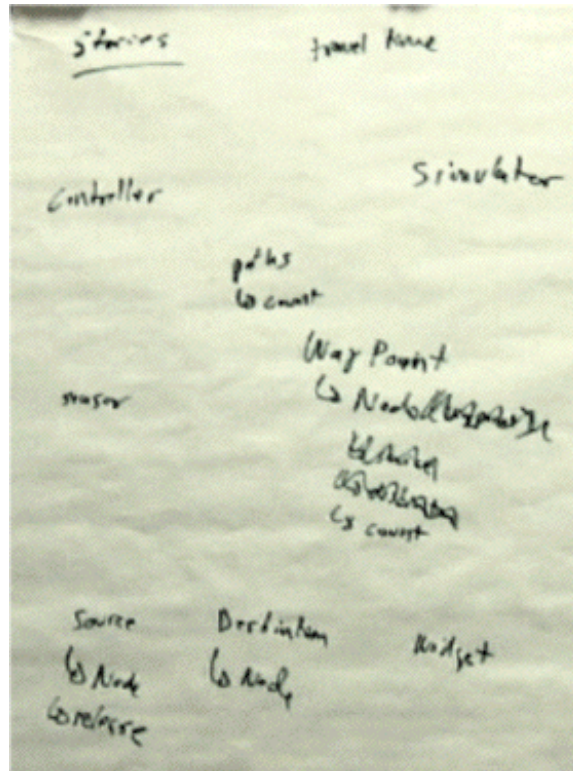 Stories
travel time
Simulator
Controller
paths
↳ count
Way Point
↳ Node
sensor
↳ count
Source
↳ Node
↳ release
Destination
↳ Node
Widget